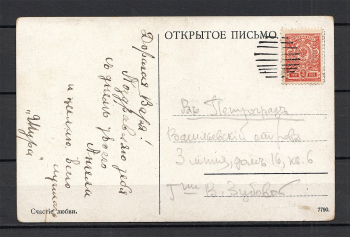 ОТКРЫТОЕ ПИСЬМО
Дорогая Варя!
Поздравляю тебя
съ днемъ твоего
Ангела
и желаю всего
"Шура"
Въ Петроградъ
Васильевскій островъ
3 линія, домъ 16, кв. 6
В. Зудовой
Счастье любви.
7790.